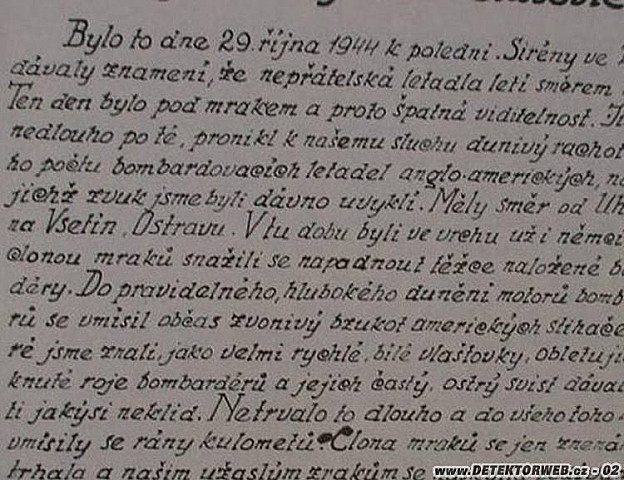 Bylo to dne 29. října 1944 k poledni. Sirény ve
dávaly znamení, že nepřátelská letadla letí směrem
Ten den bylo pod mrakem a proto špatná viditelnost.
nedlouho po té, pronikl k našemu sluchu dunivý rachot
ho počtu bombardovacích letadel anglo-amerických,
jichž zvuk jsme byli dávno uvykli. Měly směr od Uh
na Vsetín, Ostravu. V tu dobu byli ve vrchu už i němci
clonou mraků snažili se napadnout těžce naložené b
déry. Do pravidelného, hlubokého dunění motorů bomb
rů se vmísil občas zvonivý bzukot amerických stíhače
ré jsme znali, jako velmi rychlé, bílé vlaštovky, obletují
knuté roje bombardérů a jejich častý, ostrý svist dával
ti jakýsi neklid. Netrvalo to dlouho a do všeho toho
vmísily se rány kulometů. Clona mraků se jen znená
trhala a našim užaslým zrakům se
www.DETEKTORWEB.cz - 02